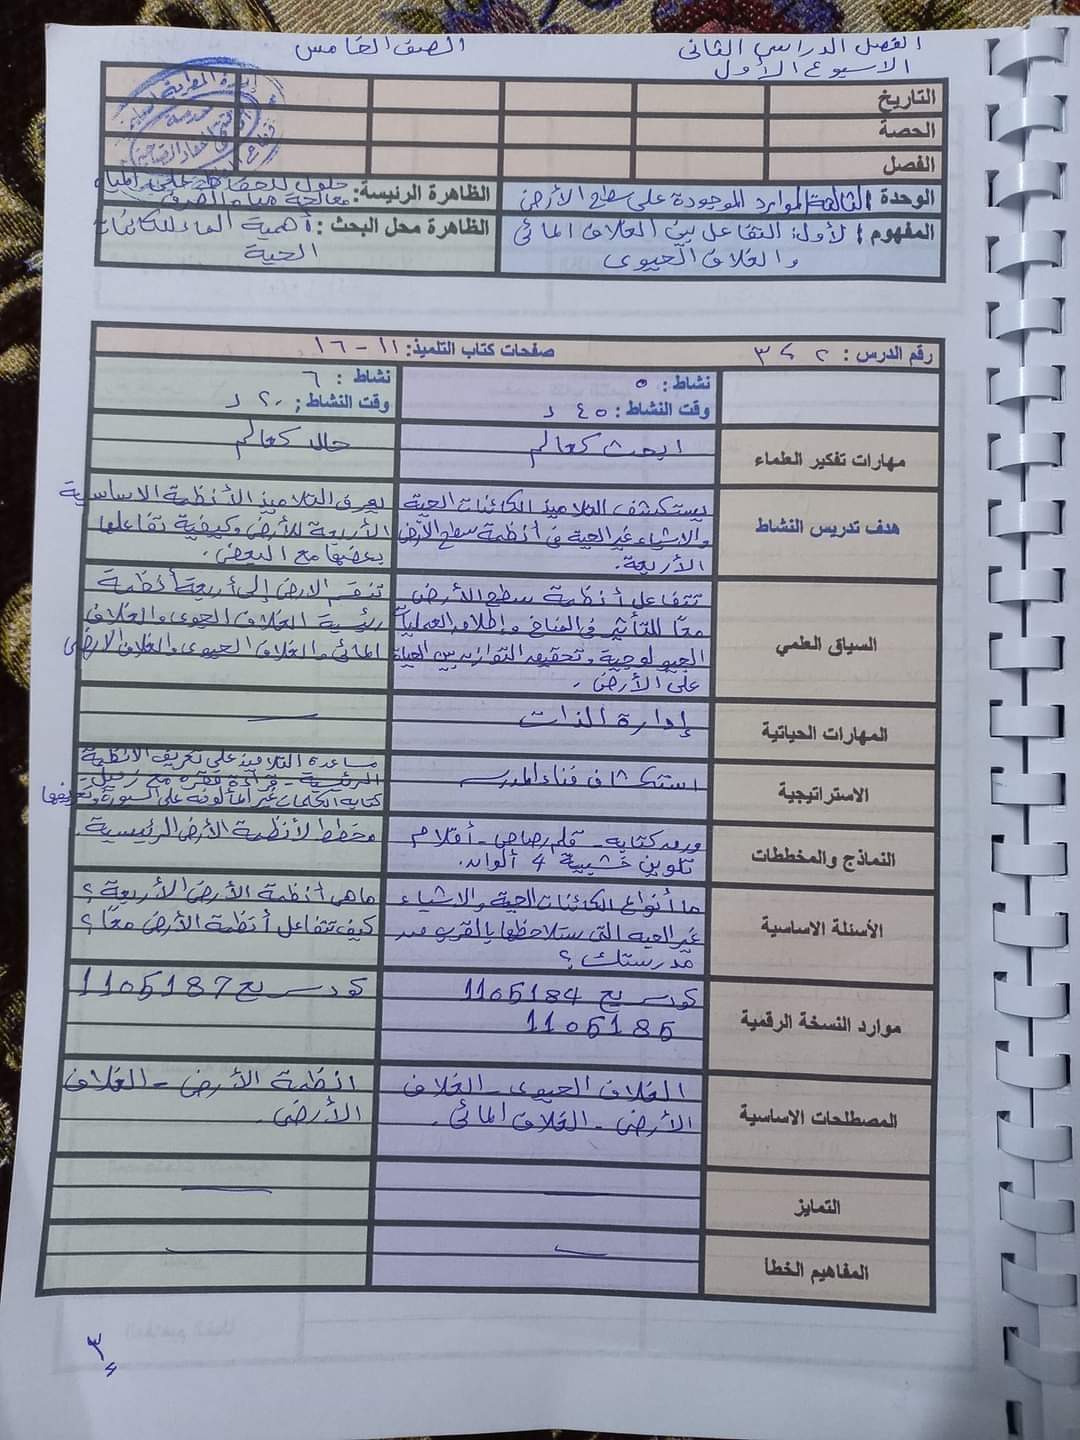 الفصل الدراسي الثانى
الصف الخامس
الاسبوع الأول
التاريخ
الحصة
الفصل
الوحدة : الثالثة الموارد الموجودة على سطح الأرض
الظاهرة الرئيسة: حلول للحفاظ على المياه
معالجة مياه الصرف
المفهوم : الأول: التفاعل بين الغلاف المائى
والغلاف الحيوى
الظاهرة محل البحث : أهمية الماء للكائنات
الحية
رقم الدرس : ٢ ، ٣
صفحات كتاب التلميذ: ١١ - ١٦
نشاط : ٥
وقت النشاط : ٤٥ د
نشاط : ٦
وقت النشاط : ٢٠ د
مهارات تفكير العلماء
ابحث كعالم
حلل كعالم
هدف تدريس النشاط
يستكشف التلاميذ الكائنات الحية
والاشياء غير الحية فى أنظمة سطح الأرض
الأربعة.
يعرف التلاميذ الأنظمة الاساسية
الأربعة للأرض وكيفية تفاعلها
بعضها مع البعض.
السياق العلمي
تتفاعل أنظمة سطح الأرض
معًا للتأثير فى المناخ وإطلاق العمليات
الجيولوجية وتحقيق التوازن بين الحياة
على الأرض.
تنقسم الارض إلى أربعة أنظمة
رئيسية الغلاف الجوى والغلاف
المائى والغلاف الحيوى والغلاف الارضى
المهارات الحياتية
إدارة الذات
الاستراتيجية
استكشاف فناء المدرسة
مساعدة التلاميذ على تعريف الأنظمة
الرئيسية - قراءة فقرة مع زميل -
كتابة الكلمات غير المألوفة على السبورة وتعريفها
النماذج والمخططات
ورقة كتابة - قلم رصاص - أقلام
تلوين خشبية 4 ألوان.
مخطط لأنظمة الأرض الرئيسية.
الأسئلة الاساسية
ما أنواع الكائنات الحية والاشياء
غير الحية التى ستلاحظها بالقرب من
مدرستك ؟
ماهى أنظمة الأرض الأربعة ؟
كيف تتفاعل أنظمة الأرض معًا ؟
موارد النسخة الرقمية
كود سريع 1105184
1105185
كود سريع 1105187
المصطلحات الاساسية
الغلاف الحيوى - الغلاف
الأرضى - الغلاف المائى.
انظمة الأرض - الغلاف
الأرضى.
التمايز
المفاهيم الخطأ
٣